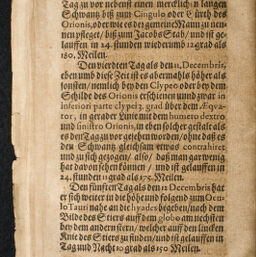 Tag zu vor nebenst einen mercklich langen
Schwantz biß zum Cingulo oder Gürth des
Orionis, oder wie es der gemeine Mann zu nen-
nen pfleget/ biß zum Jacobs Stab/ und ist ge-
lauffen in 24. stunden wiederumb 12 grad als
180. Meilen.
Den vierdten Tag als den 11. Decembris,
eben umb diese Zeit ist es abermahls höher als
sonsten/ nemlich bey den Clypeo oder bey dem
Schilde des Orionis erschienen unnd zwar in
inferiori parte clypei 3. grad über dem Æqua-
tor, in gerader Linie mit dem humero dextro
und sinistro Orionis, in eben solcher gestalt als
es den Tag zu vor gesehen worden/ ohne daß es
den Schwantz gleichsam etwas contrahiret
und zu sich gezogen/ also/ daß man gar wenig
hat davon sehen können/ und ist gelauffen in
24. stunden 11 grad als 175. Meilen.
Den fünfften Tag als den 12 Decembris hat
er sich weiter in die höhe und folgend zum Ocu-
lo Tauri nahe an die hyades begeben/ nach dem
Bilde des Stiers auff dem globo am nechsten
bey dem andern stern/ welcher auff den lincken
Knie des Stiers zu finden/ und ist gelauffen in
Tag und Nacht 10 grad als 150 Meilen.